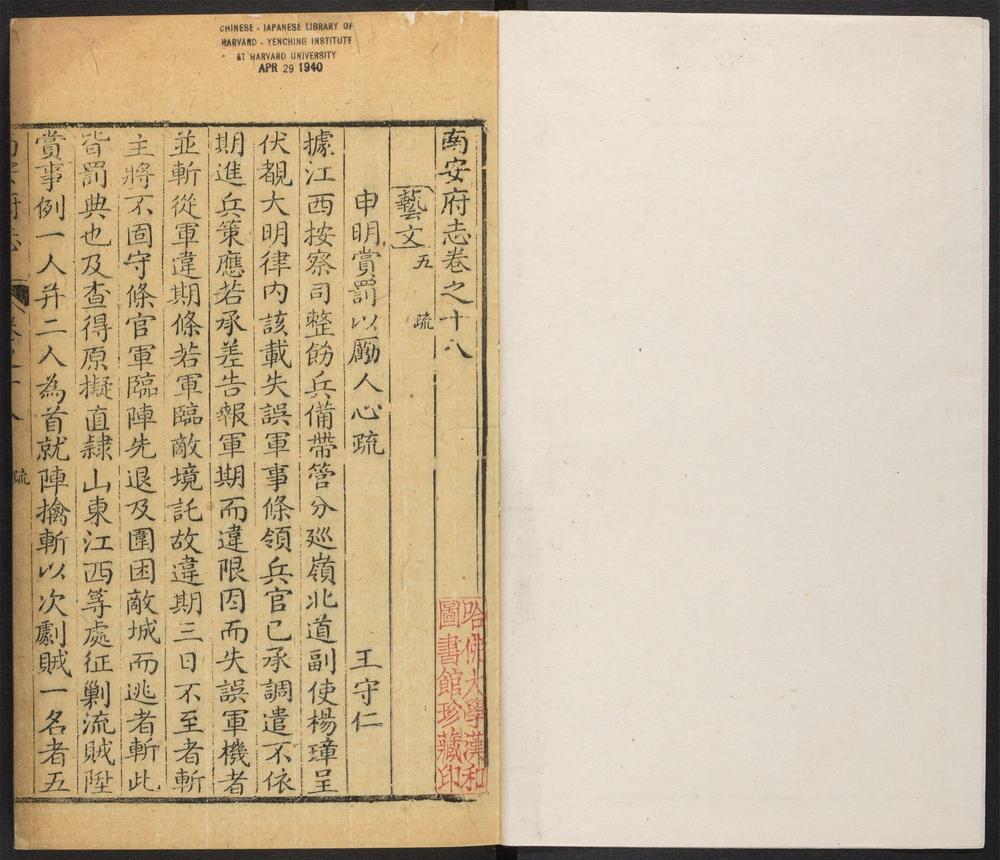 CHINESE - JAPANESE LIBRARY OF
HARVARD - YENCHING INSTITUTE
AT HARVARD UNIVERSITY
APR 29 1940
南安府志卷之十八
藝文五 疏
申明賞罰以勵人心疏 王守仁
據江西按察司整飭兵備帶管分廵嶺北道副使楊璋呈
伏覩大明律內該載失誤軍事條領兵官已承調遣不依
期進兵策應若承差告報軍期而違限因而失誤軍機者
並斬從軍違期條若軍臨敵境託故違期三日不至者斬
主將不固守條官軍臨陣先退及圍困敵城而逃者斬此
皆罰典也及查得原擬直隸山東江西等處征剿流賊陞
賞事例一人并二人為首就陣擒斬以次劇賊一名者五
疏
哈佛大學漢和
圖書館珍藏印